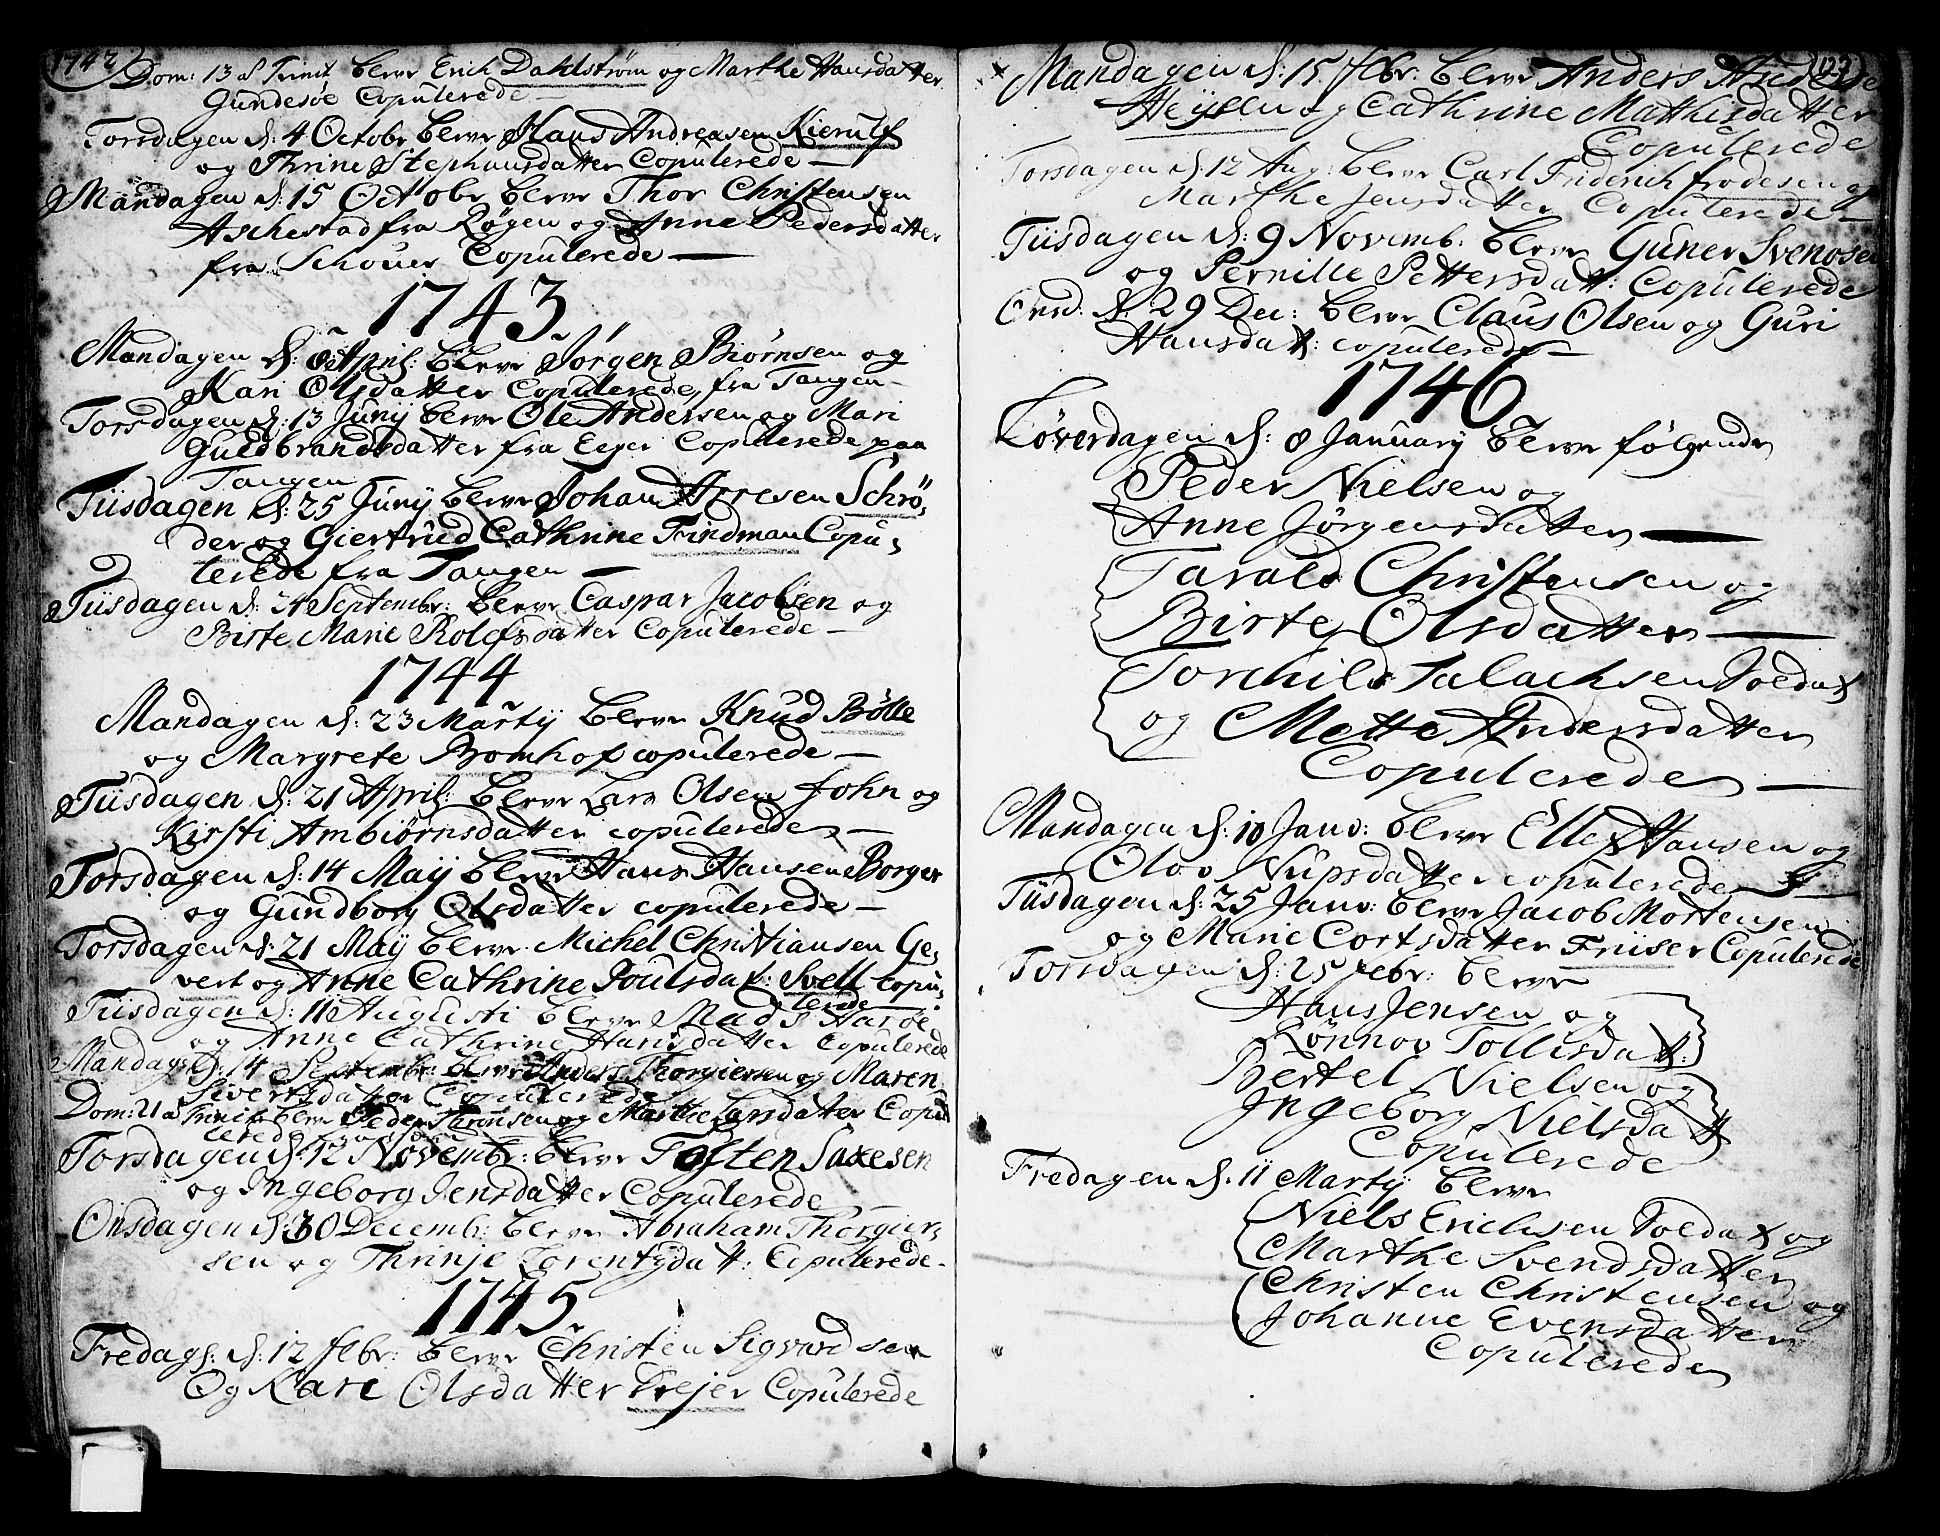 1742
Dom: 13 af Trinit blewe Erich Dahlstrøm og Marthe Hansdatter
Gundesøe Copulerede
Torsdagen d: 4 Octobr blewe Hans Andreasen Kierulf
og Thrine Stephansdatter Copulerede
Mandagen d: 15 Octobr blewe Thor Christensen
Aschestad fra Røgen og Anne Pedersdatter
fra Schouer Copulerede
1743.
Mandagen d: 8 April: blewe Jørgen Biørnsen og
Kari Olsdatter Copulerede, fra Tangen
Torsdagen d: 13 Juny blewe Ole Andersen og Mari
Guldbrandsdatter fra Eger Copulerede paa
Tangen
Tiisdagen d: 25 Juny blewe Johan Arresen Schrø-
der og Giertrud Cathrine Findman Copu-
lerede fra Tangen
Tiisdagen d: 24 Septembr: blewe Caspar Jacobsen og
Birte Marie Rolefsdatter Copulerede
1744
Mandagen d: 23 Martij blewe Knud Bølle
og Margrete Bomhof copulerede
Tiisdagen d: 21 April: blewe Lars Olsen John og
Kirsti Ambiørnsdatter copulerede
Torsdagen d: 14 Maij blewe Hans Hansen Borger
og Gundborg Olsdatter copulerede
Torsdagen d: 21 Maij blewe Michel Christiansen Ge-
vert og Anne Cathrine Poulsdat: Svell Copu-
lerede
Tiisdagen d: 11 Augusti blewe Mads Harøe
og Anne Cathrine Hansdatter Copulerede
Mandag d: 14 Septembr: blewe Anders Thorgiersen og Maren
Sivertsdatter Copulerede
Dom: 21 a Trinit: blewe Peder Thronsen og Marthe Larsdatter Copu
lerede
Torsdagen d: 12 Novembr: blewe Tosten Saxesen
og Ingeborg Jensdatter Copulerede
Onsdagen d: 30 Decemb: blewe Abraham Thorgier-
sen og Thrinje Lorentzdatt: Copulerede
1745.
Fredags: d: 12 febr: blewe Christen Sigvardsen
Og Kari Olsdatter Trejer Copulerede
Mandagen d: 15 febr: blewe Anders
Heysen og Cathrine Mathisdatter
Copulerede
Torsdagen d: 12 Aug: blewe Carl Friderich frodesen og
Marthe Jensdatter Copulerede
Tiisdagen d: 9 Novemb: blewe Guner Svenosen
og Pernille Pettersdatt: Copulerede
Onsd. d: 29 Dec: blewe Claus Olsen og Guri
Hansdatt: copulerede
1746
Løverdagen d: 8 January blewe følgende
Peder Nielsen og
Anne Jørgensdatter
Tarald Christensen og
Birte Olsdatter
Torchild Salachsen Soldat
og Mette Andersdatter
Copulerede
Mandagen d: 10 Janv: blewe Ellef Hansen og
Olov Nupsdatter copulerede
Tiisdagen d: 25 Janv: blewe Jacob Mortensen
og Marie Cortsdatter Friiser Copulerede
Torsdagen d: 25 febr: blewe
Hans Jensen og
Rønnov Tollisdatt:
Bertel Nielsen og
Ingeborg Nielsdatt
Copulerede
Fredagen d: 11 Martij blewe
Niels Erichsen Soldat og
Marthe Svendsdatter
Christen Christensen og
Johanne Evensdatter
Copulerede